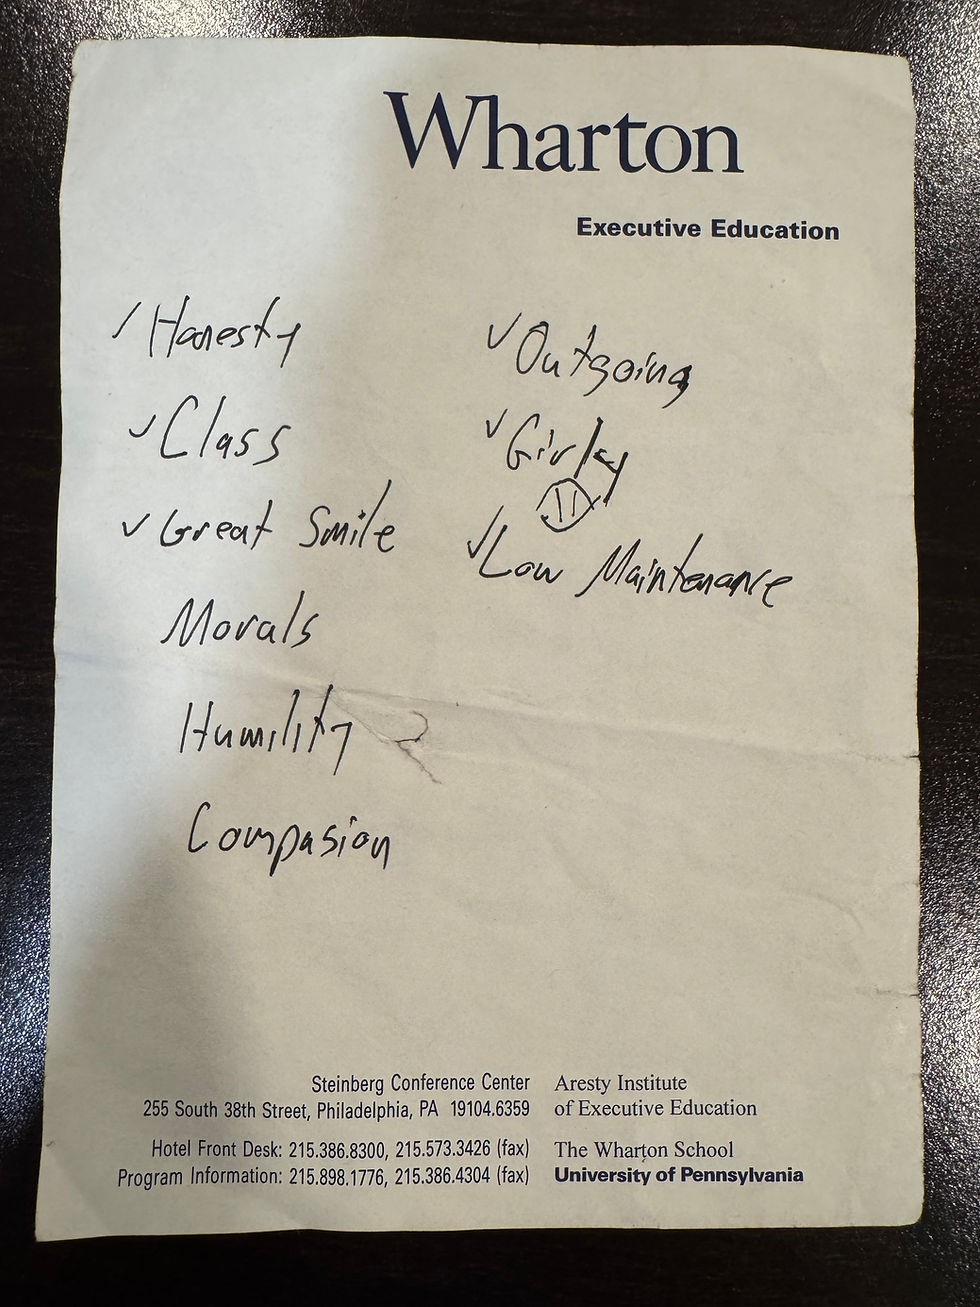 Wharton
Executive Education
✓ Honesty
✓ Class
✓ Great Smile
Morals
Humility
Compasion
✓ Outgoing
✓ Girly
✓ Low Maintenance
Steinberg Conference Center
255 South 38th Street, Philadelphia, PA 19104.6359
Hotel Front Desk: 215.386.8300, 215.573.3426 (fax)
Program Information: 215.898.1776, 215.386.4304 (fax)
Aresty Institute
of Executive Education
The Wharton School
University of Pennsylvania